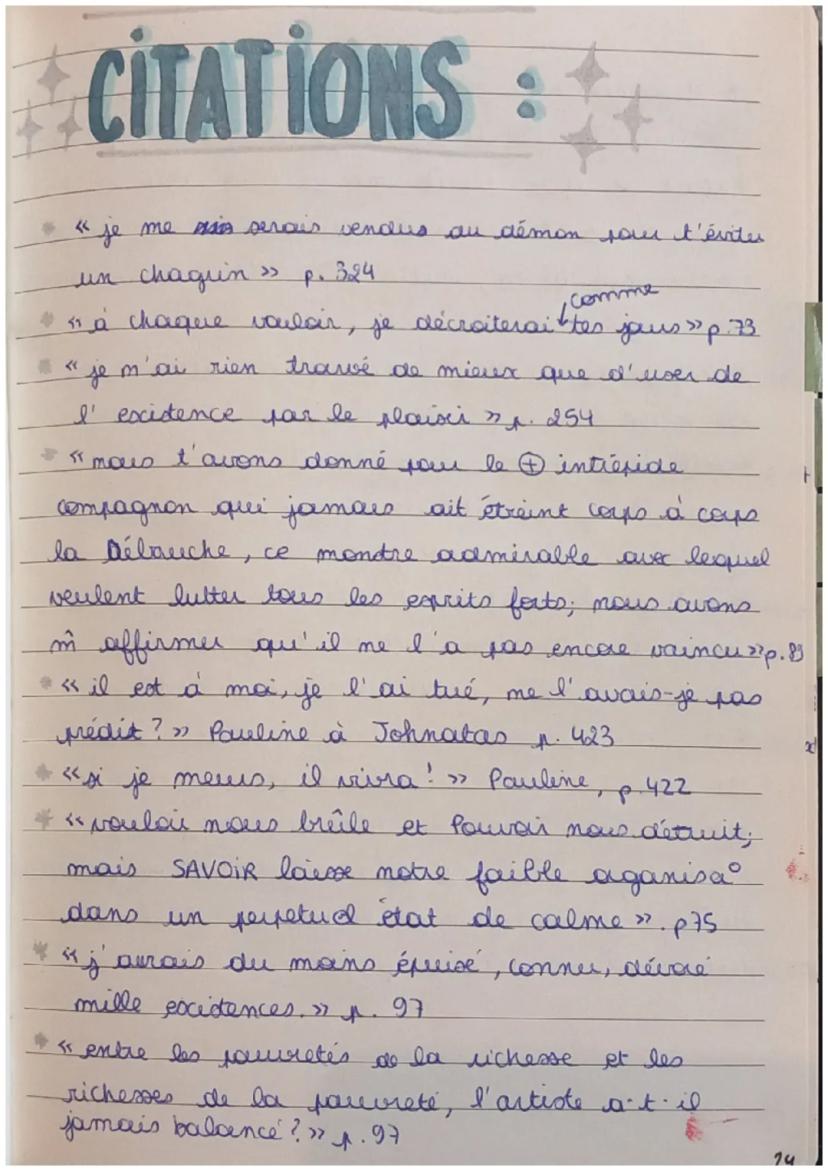 CITATIONS :
« je me serais vendus au démon pour t'éviter
un chagrin » p. 324
comme
« à chaque vouloir, je décroiterai tes jours » p.73
« je n'ai rien trouvé de mieux que d'user de
l'existence par le plaisir » p. 254
« nous t'avons donné pour le ⊕ intrépide
compagnon qui jamais ait étreint corps à corps
la Débauche, ce monstre admirable avec lequel
veulent lutter tous les esprits forts; nous avons
m̂ affirmer qu'il ne l'a pas encore vaincu » p. 89
« il est à moi, je l'ai tué, ne l'avais-je pas
prédit ? » Pauline à Johnatas p. 423
« si je meurs, il vivra ! » Pauline, p 422
« vouloir nous brûle et Pouvoir nous détruit;
mais SAVOIR laisse notre faible aganisa°
dans un perpetuel état de calme ». p75
« j'aurais du moins épuisé, connu, dévoré
mille existences. » p. 97
« entre les pauvretés de la richesse et les
richesses de la pauvreté, l'artiste a-t-il
jamais balancé ? » p. 97
24